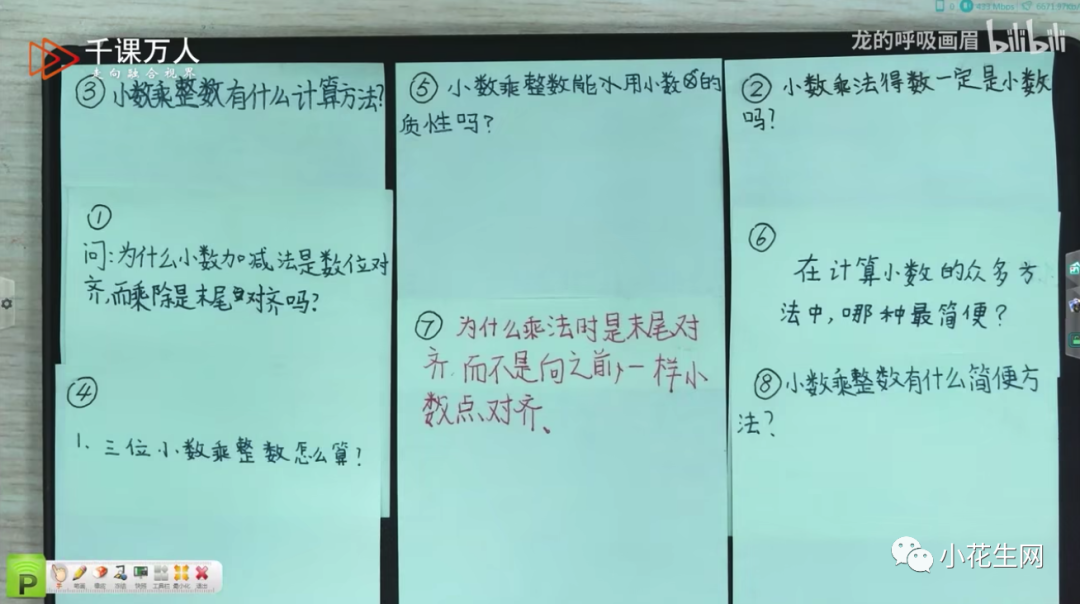 千课万人
走向融合视界
龙的呼吸画眉 bilibili
③小数乘整数有什么计算方法?
①
问:为什么小数加减法是数位对
齐,而乘除是末尾对齐吗?
④
1、三位小数乘整数怎么算?
⑤ 小数乘整数能用小数的
质性吗?
⑦ 为什么乘法时是末尾对
齐,而不是向之前一样小
数点对齐、
② 小数乘法得数一定是小数
吗?
⑥
在计算小数的众多方
法中,哪种最简便?
⑧小数乘整数有什么简便方
法?
小花生网
P